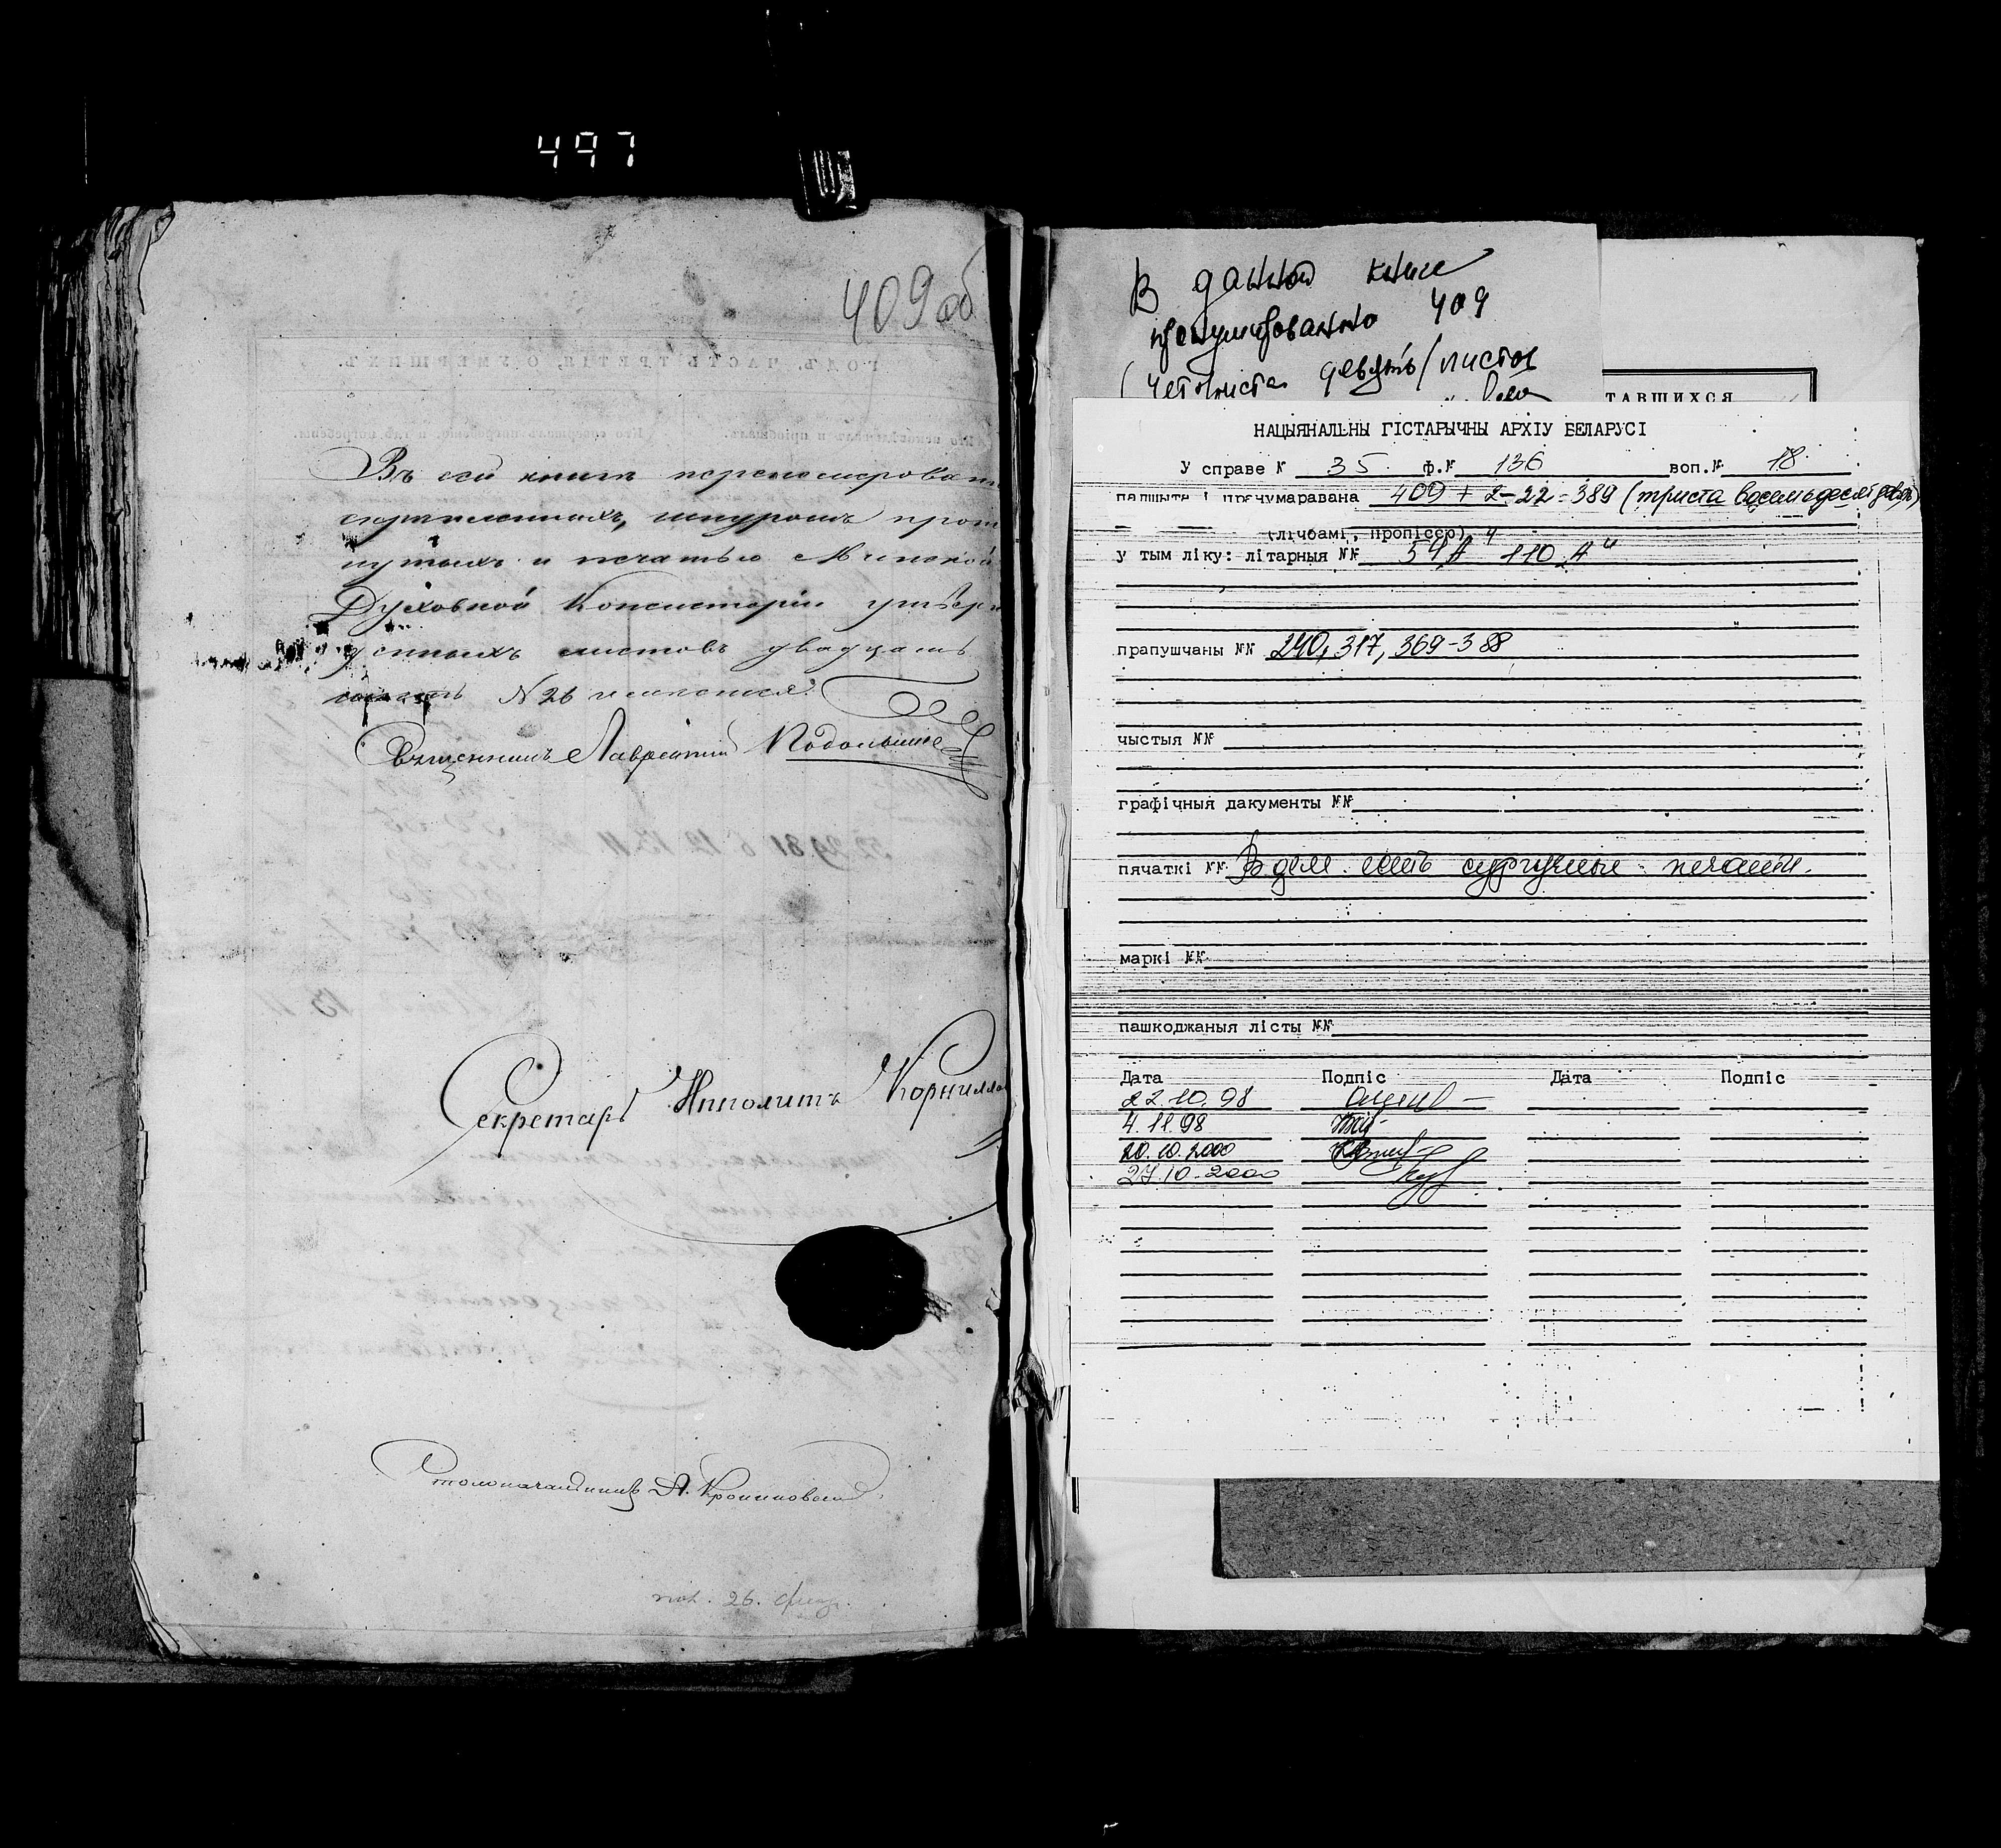 497
409 об
ГОДЪ, ЧАСТЬ ТРЕТІЯ, О УМЕРШИХЪ.
Въ сей книгѣ перенумерован
скрѣпленныхъ, шнуромъ прот
нутыхъ и печатью Минской
Духовной Консисторіи утверж
денныхъ листовъ двадцать
шесть N 26 имеется.
Священникъ Лаврентій Подольскій
Секретарь Ипполитъ Корнилло
Столоначальникъ А.
26.
В данной книге
пронумеровано 409
(четыреста девять) листов
ТАВШИХСЯ
НАЦЫЯНАЛЬНЫ ГІСТАРЫЧНЫ АРХІУ БЕЛАРУСІ
У справе № 35 ф.№ 136 воп.№ 18
падшыта і пранумаравана 409 + 2 - 22 = 389 (триста восемьдесят девять)
(лічбамі, пропіссю)
у тым ліку: літарныя №№ 54"А" 110"А"
прапушчаны №№ 240, 317, 369-388
чыстыя №№
графічныя дакументы №№
пячаткі №№ В деле есть сургучные печати.
маркі №№
пашкоджаныя лісты №№
Дата Подпіс Дата Подпіс
22.10.98
4.11.98
20.10.2000
27.10.2000